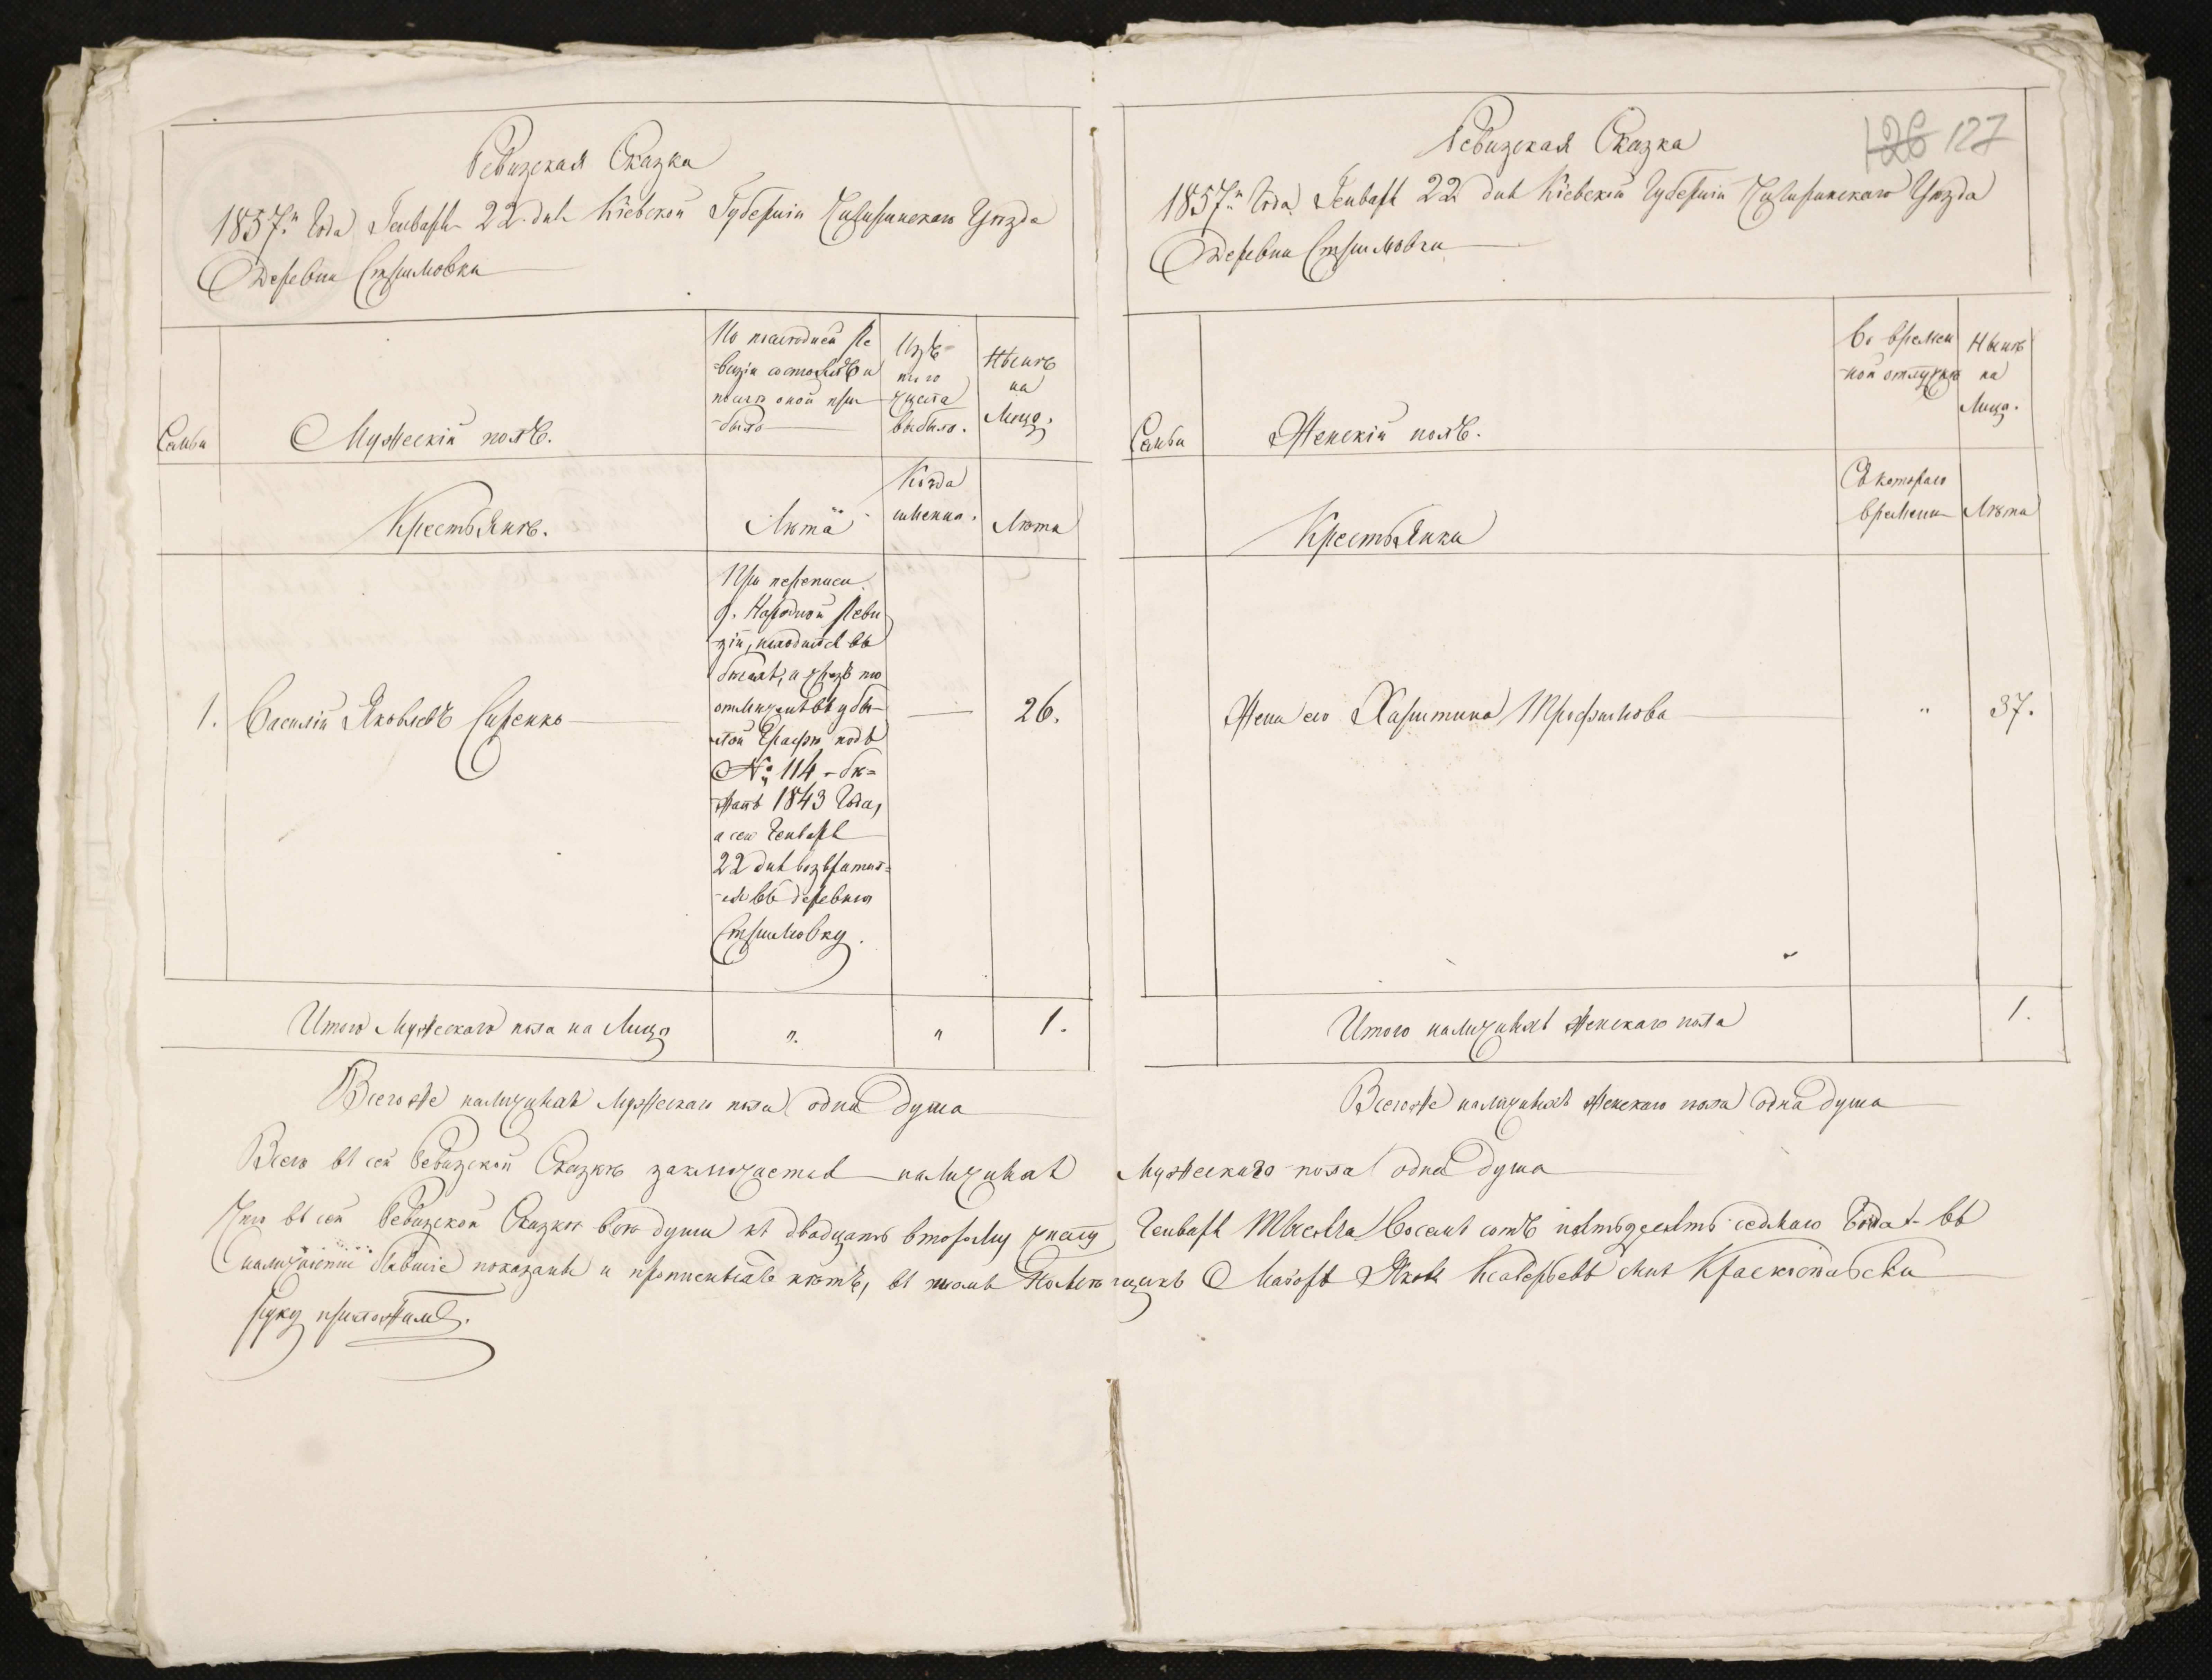 Ревизская Сказка
1857.го Года Генваря 22 дня Кіевской Губерніи Чигиринскаго Уѣзда
Деревни Стримовки
Семьи
Мужескій полъ.
По последней Ре
-визіи состояло и
послѣ оной при
-было
Изъ
того
числа
выбыло.
Нынѣ
на
Лицо.
Крестьянъ.
Лѣта
Когда
именно.
Лѣта
При переписи
9. Народной Реви
-зіи, находился въ
бѣгахъ, а чрезъ то
отмѣченъ въ убы-
-лой Графѣ подъ
№ 114 - бѣ=
-жалъ 1843 Года,
а сего Генваря
22 дня возвратил=
-ся въ деревню
Стримовку.
1. Василій Яковлевъ Сиренко
26.
Итого Мужескаго пола на Лицо
" " 1.
Всегоже наличныхъ Мужескаго пола одна душа
126 127
Ревизская Сказка
1857.го Года Генваря 22 дня Кіевской Губерніи Чигиринскаго Уѣзда
Деревни Стримовки
Семьи
Женскій полъ.
Во времен
-ной отлучкѣ
Нынѣ
на
Лицо.
Крестьянки
Съ котораго
времени
Лѣта
Жена его Харитина Трофимова " 37.
Итого наличныхъ Женскаго пола 1.
Всегоже наличныхъ Женскаго пола одна душа
Всего въ сей Ревизской Сказкѣ заключается наличныхъ Мужескаго пола одна душа
Что въ сей Ревизской Сказкѣ всѣ души къ двадцать второму числу Генваря Тысяча Восемь сотъ пятьдесятъ седьмаго Года въ
наличности бывшіе показаны и прописныхъ нѣтъ, въ томъ Помѣщикъ Маіоръ Яковъ Ксаверьевъ сынъ
руку приложилъ.